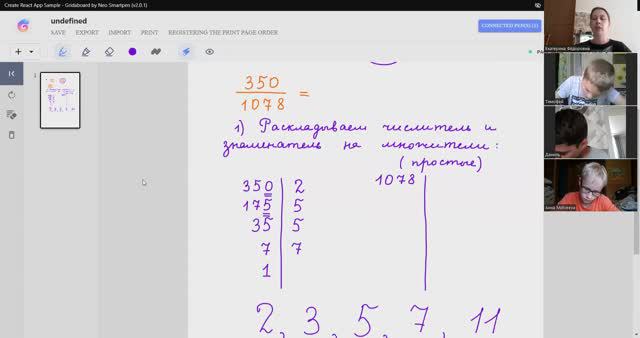 Create React App Sample - Gridaboard by Neo Smartpen (v2.0.1)
undefined
SAVE EXPORT IMPORT PRINT REGISTERING THE PRINT PAGE ORDER
CONNECTED PEN(S) (1)
1
350
1078 =
1) Раскладываем числитель и
знаменатель на множители:
(простые)
350 2
175 5
35 5
7 7
1
1078
2, 3, 5, 7, 11
Екатерина Фёдоровна
Тимофей
Даниль